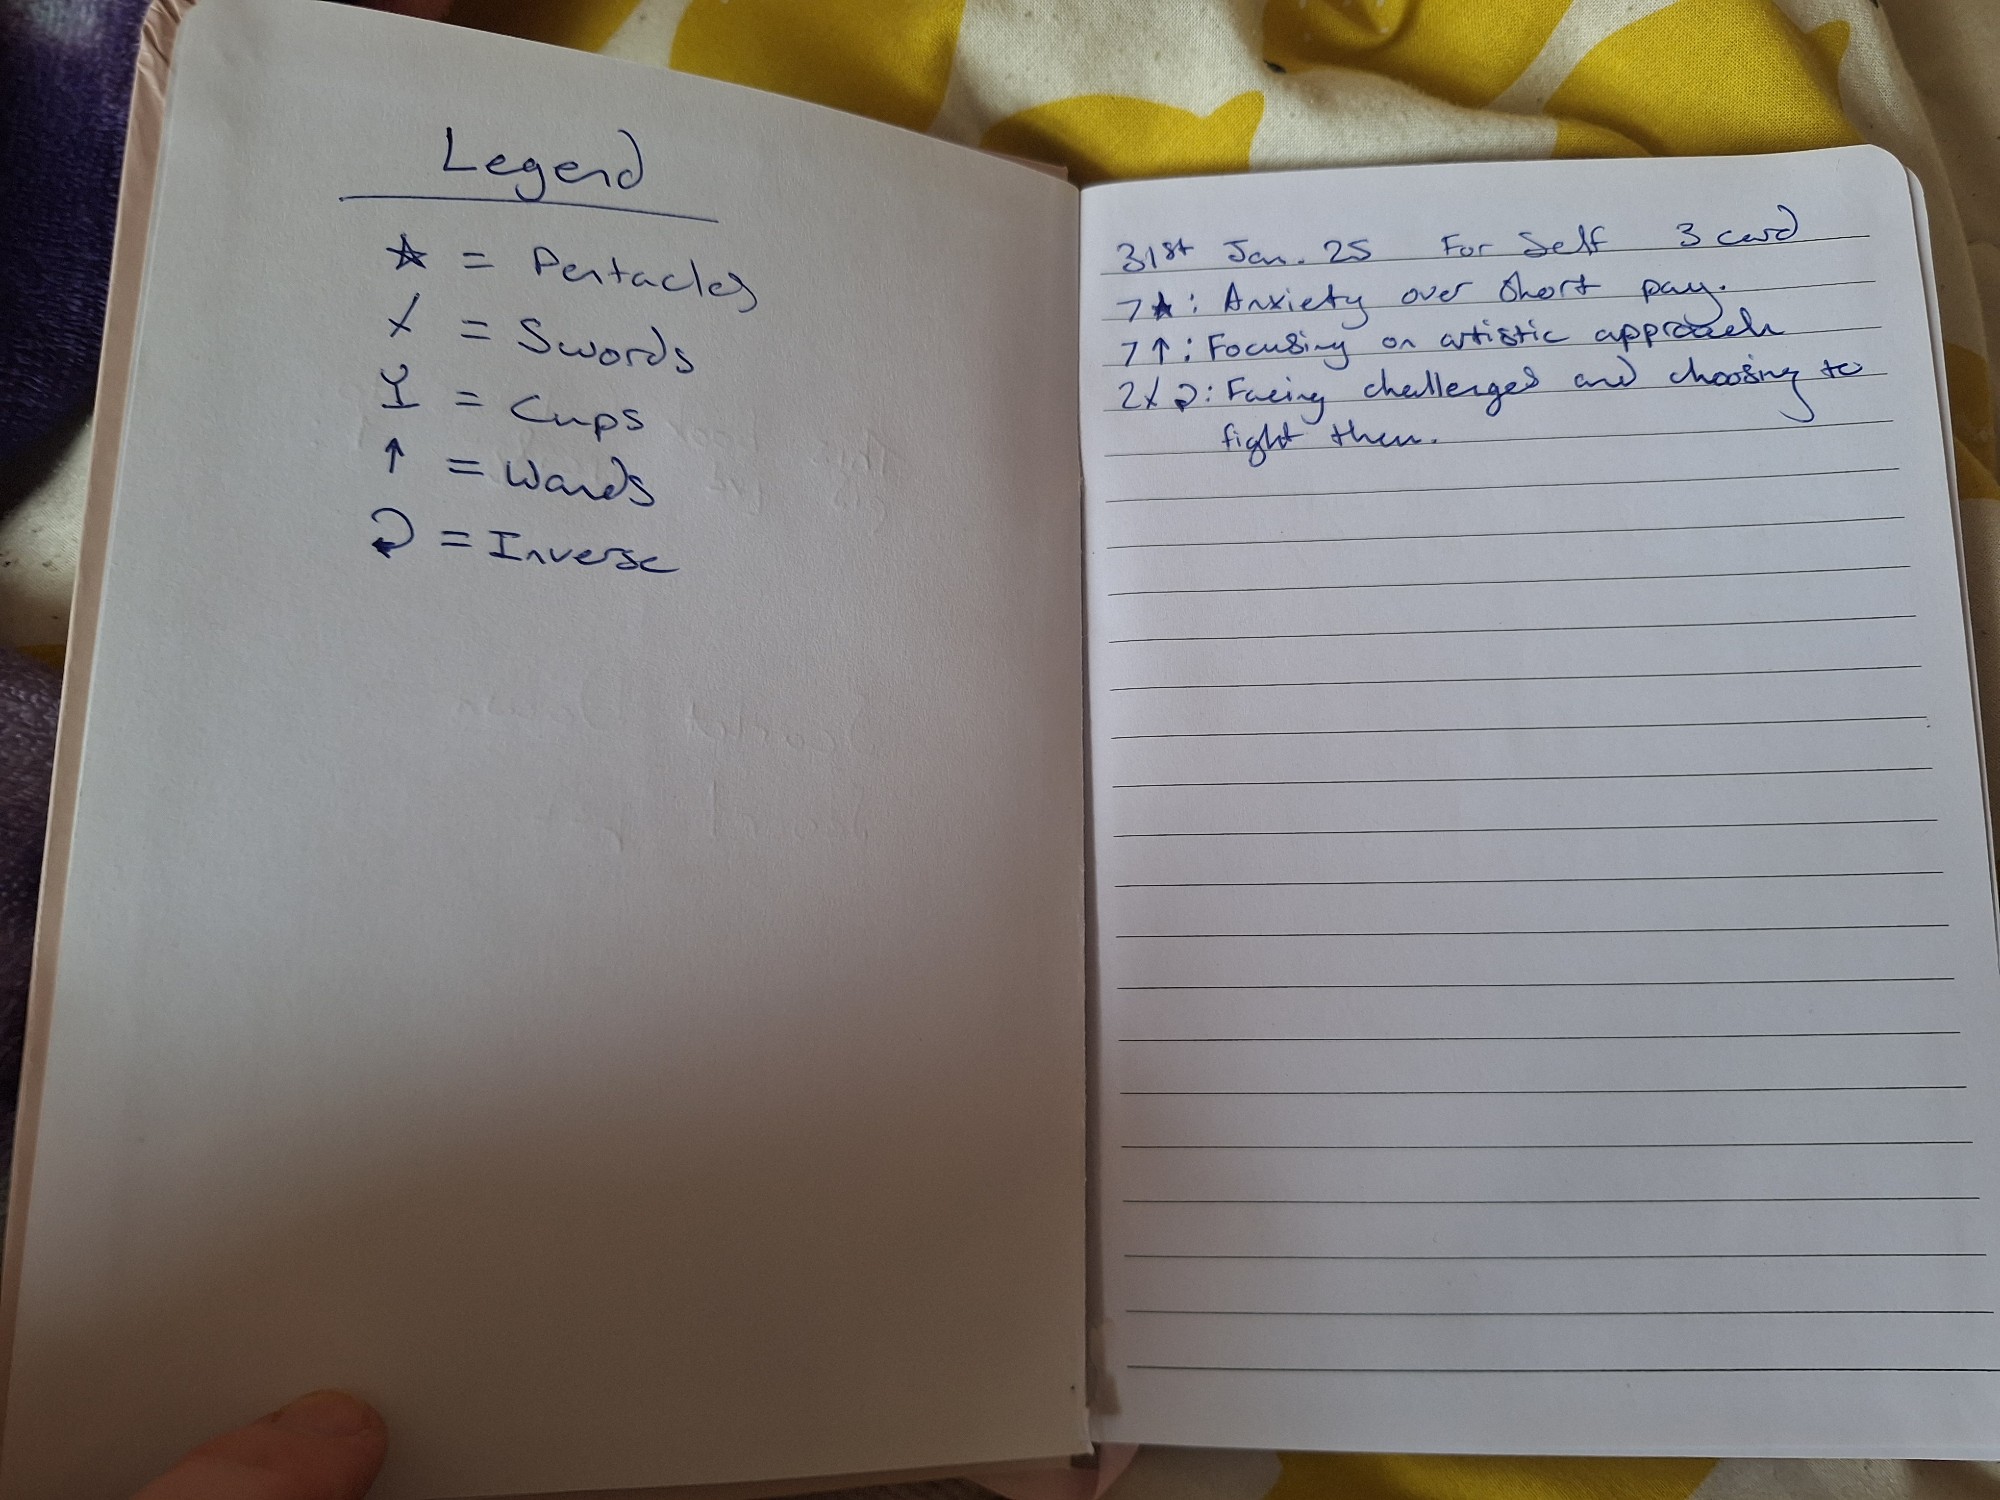 Legend
☆ = Pentacles
= Swords
= Cups
↑ = Wands
= Inverse
31st Jan. 25 For Self 3 card
7★: Anxiety over short pay.
7↑: Focusing on artistic approach
2 : Facing challenges and choosing to
fight them.
This book